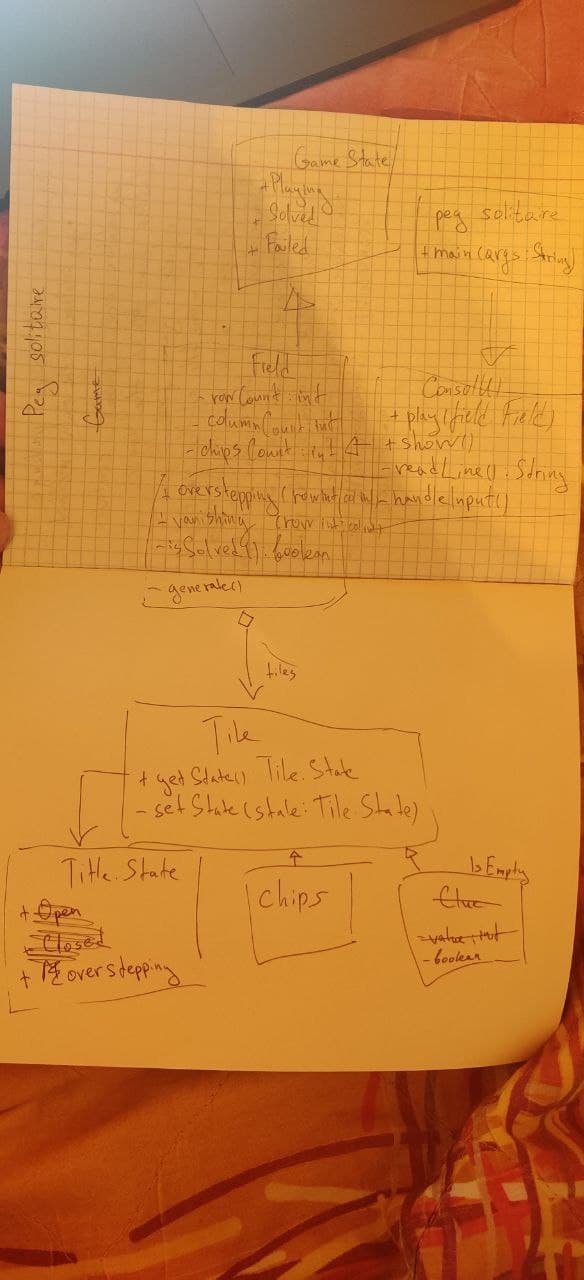 Peg solitaire
Game
Game State
+ Playing
+ Solved
+ Failed
peg solitaire
+ main(args: String)
Field
- rowCount: int
- columnCount: int
- chipsCount: int
+ overstepping (row int, col int)
+ vanishing (row int, col int)
- isSolved(): boolean
- generate()
ConsolUI
+ play(field Field)
+ show()
- readLine(): String
- handleInput()
tiles
Tile
+ getState() Tile.State
- setState(state: Tile.State)
Title.State
+ Open
+ Closed
+ overstepping
Chips
IsEmpty
Clue
- value: int
- boolean